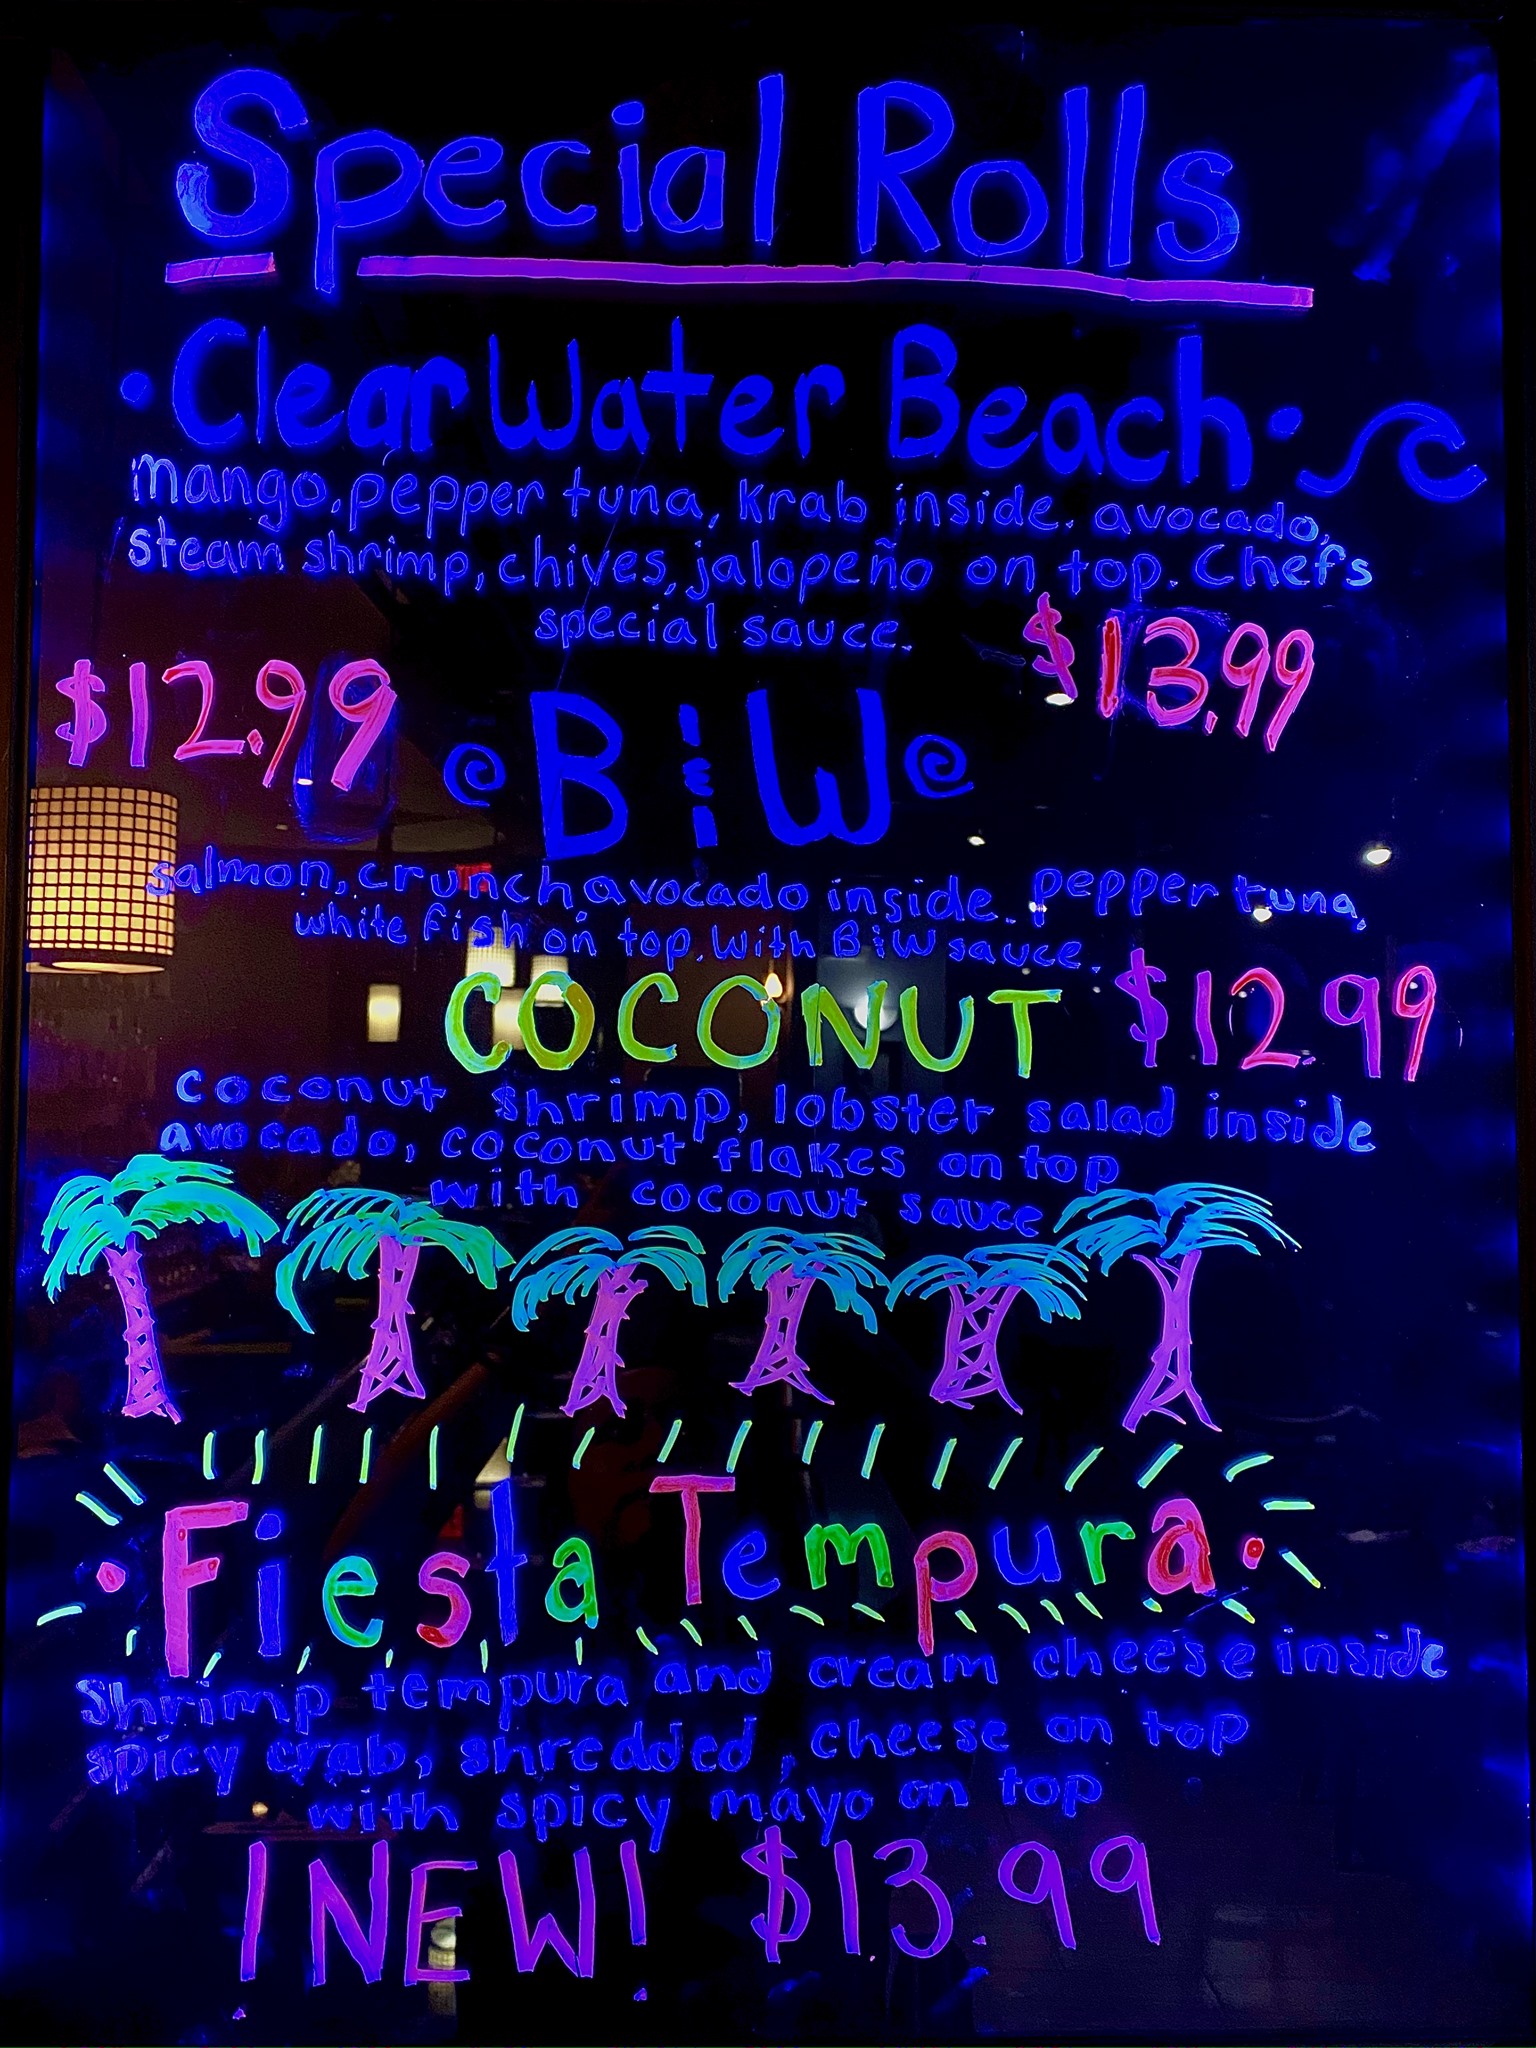 Special Rolls
• ClearWater Beach •
mango, pepper tuna, krab inside. avocado,
steam shrimp, chives, jalapeño on top. Chefs
special sauce.
$13.99
$12.99
B & W
salmon, crunch avocado inside. pepper tuna,
white fish on top. With B&W sauce.
COCONUT $12.99
coconut shrimp, lobster salad inside
avocado, coconut flakes on top
with coconut sauce
• Fiesta Tempura •
Shrimp tempura and cream cheese inside
spicy crab, shredded, cheese on top
with spicy mayo on top
! NEW! $13.99